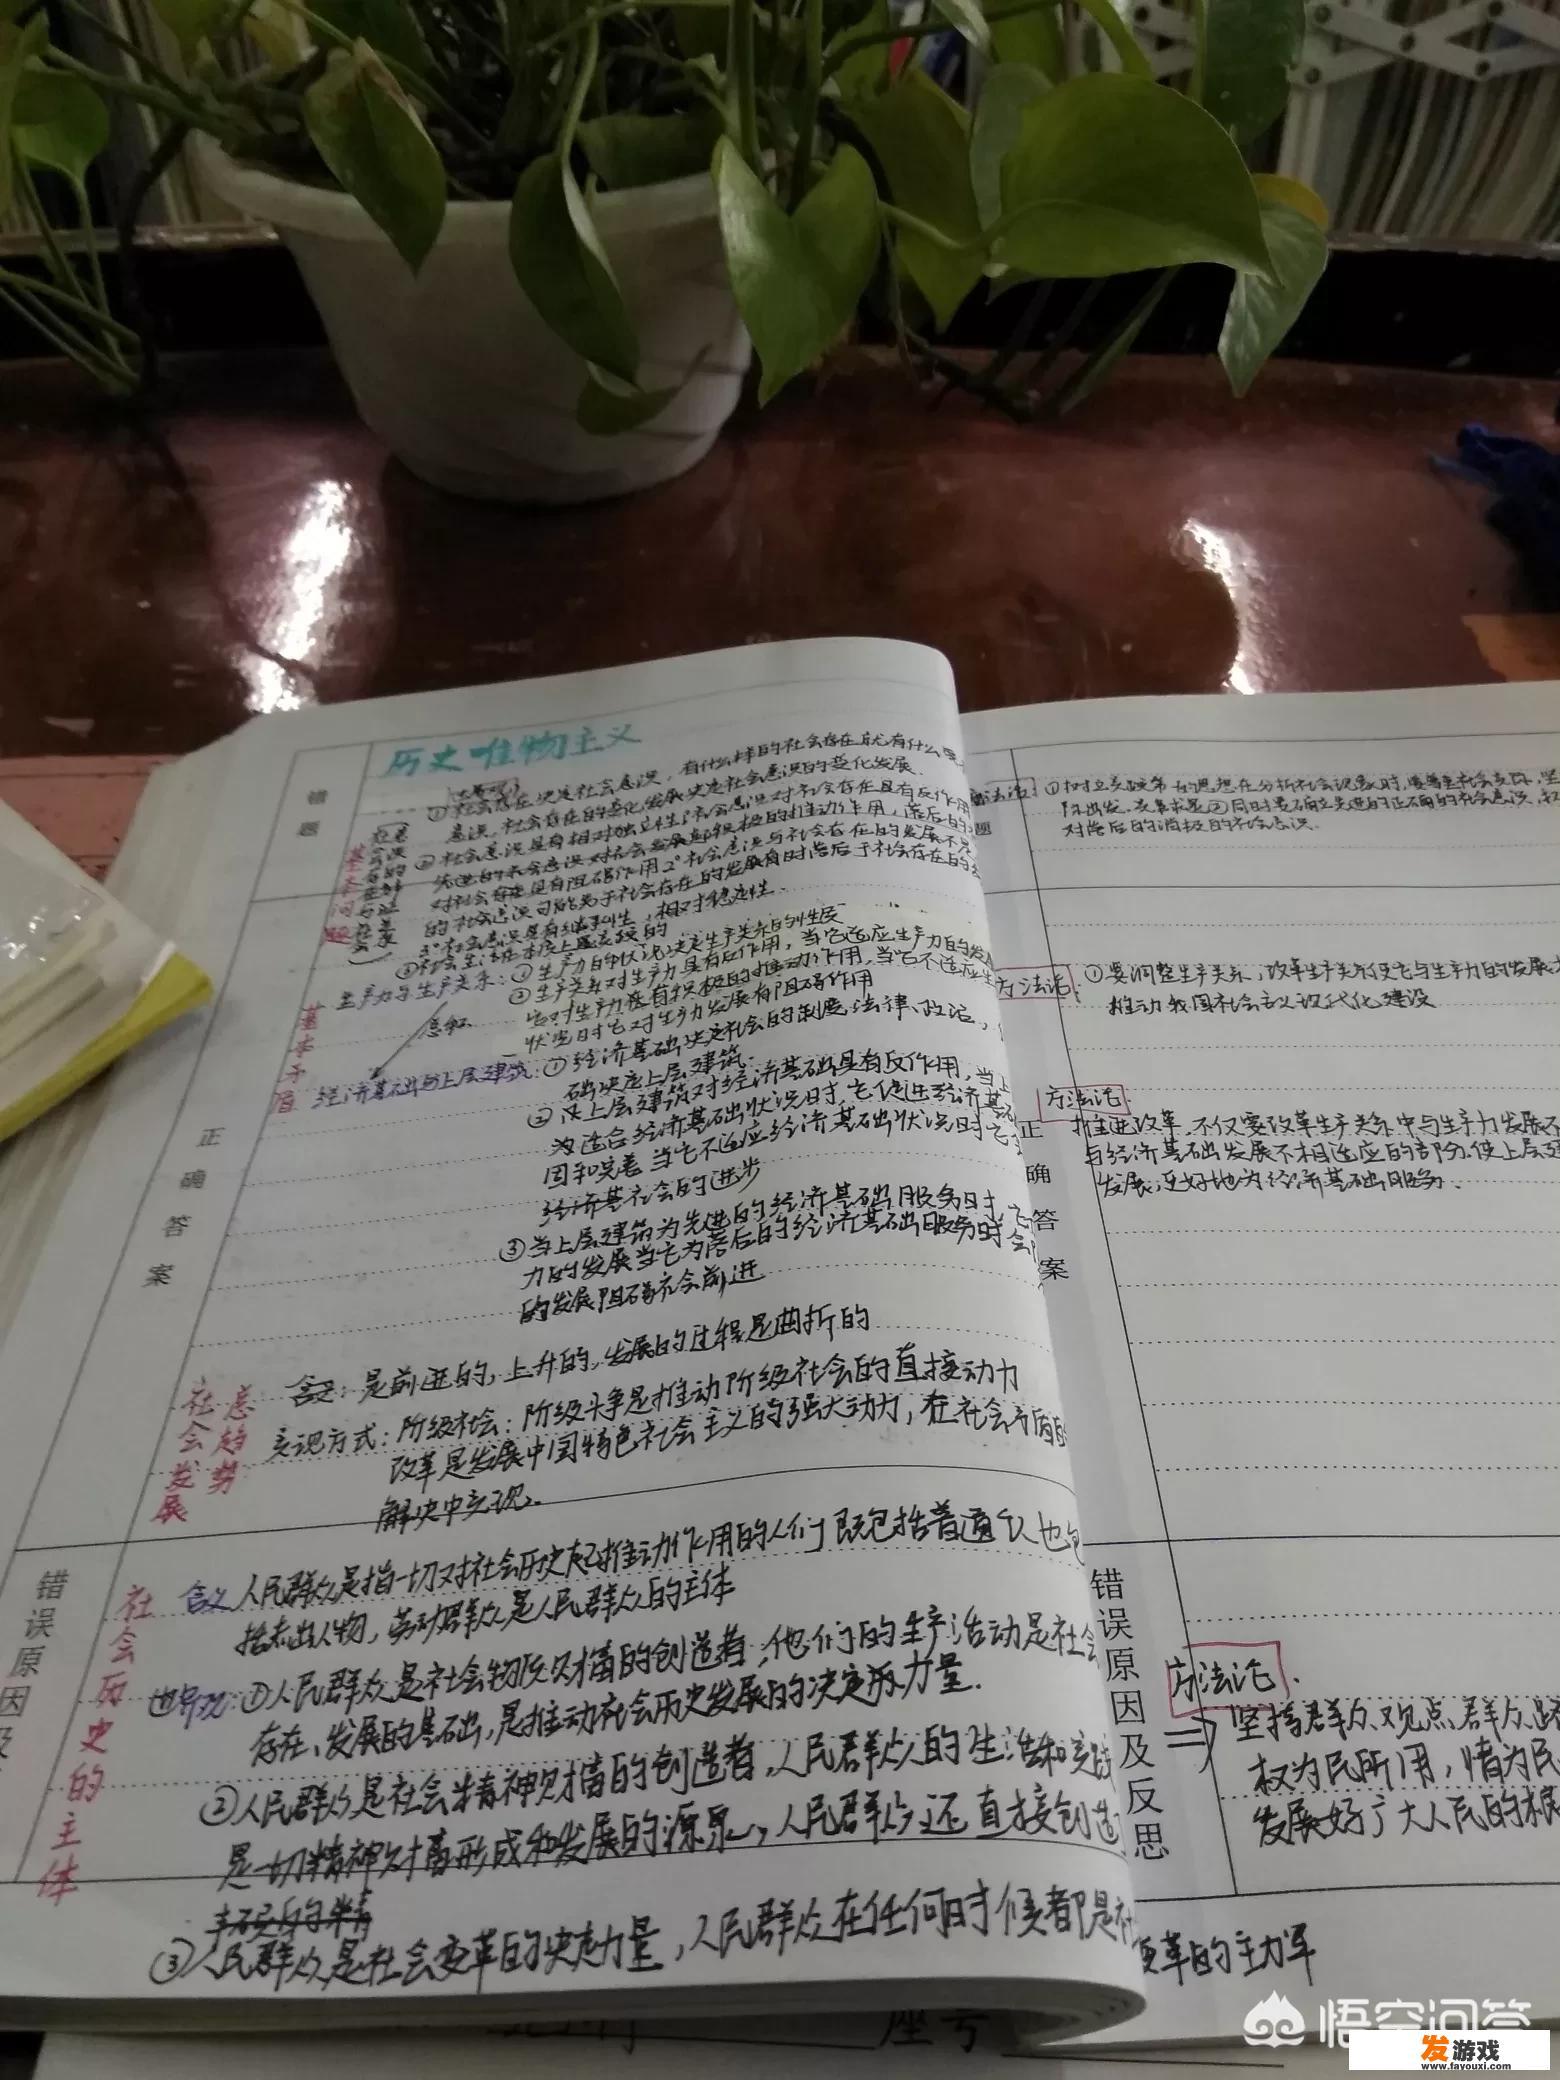 历史唯物主义
错题
基本问题
①社会存在决定社会意识，有什么样的社会存在就有什么
意识，社会存在的变化发展决定社会意识的变化发展.
②社会意识具有相对独立性1°社会意识对社会存在具有反作用
先进的社会意识对社会发展起积极的推动作用，落后的
对社会存在具有阻碍作用2°社会意识与社会存在的发展不是
的社会意识可能先于社会存在的发展有时落后于社会存在的
3°社会意识具有继承性，相对稳定性.
③社会生活在本质上是实践的
基本矛盾
生产力与生产关系：①生产力的状况决定生产关系的性质
②生产关系对生产力具有反作用，当它适应生产力的发
它对生产力在有积极的推动作用，当它不适应生
状况时它对生产力发展有阻碍作用
总和
经济基础与上层建筑：①经济基础决定社会的制度法律、政治，
础决定上层建筑.
②上层建筑对经济基础具有反作用，当上
为适合经济基础状况时，它促进经济基
固和完善 当它不适应经济基础状况时它
经济基社会的进步
③当上层建筑为先进的经济基础服务时，
力的发展当它为落后的经济基础服务时会
的发展阻碍社会前进
正确答案
社会发展
总趋势
含义：是前进的，上升的，发展的过程是曲折的
实现方式：阶级社会：阶级斗争是推动阶级社会的直接动力
改革是发展中国特色社会主义的强大动力，在社会矛盾的
解决中实现.
错误原因及
社会历史的主体
含义 人民群众是指一切对社会历史起推动作用的人们 既包括普通 也包
括杰出人物，劳动群众是人民群众的主体
世界观：①人民群众是社会物质财富的创造者，他们的生产活动是社会
存在、发展的基础，是推动社会历史发展的决定力量.
②人民群众是社会精神财富的创造者，人民群众的生活和实践
是一切精神财富形成和发展的源泉，人民群众还直接创造
③人民群众是社会变革的决定力量，人民群众在任何时候都是社
变革的主力军
方法论
题
际出发，实事求是②同时要树立先进的正确的社会意识，
对落后的消极的社会意识.
方法论：
①要调整生产关系，改革生产关系使它与生产力的发展
推动我国社会主义现代化建设
方法论.
推进改革，不仅要改革生产关系中与生产力发展不
与经济基础发展不相适应的部分，使上层建
发展，更好地为经济基础服务.
正确答案
错误原因及反思
方法论.
坚持群众观点、群众路
权为民所用，情为民
发展好广大人民的根
座号
悟空问答
发游戏
www.fayouxi.com